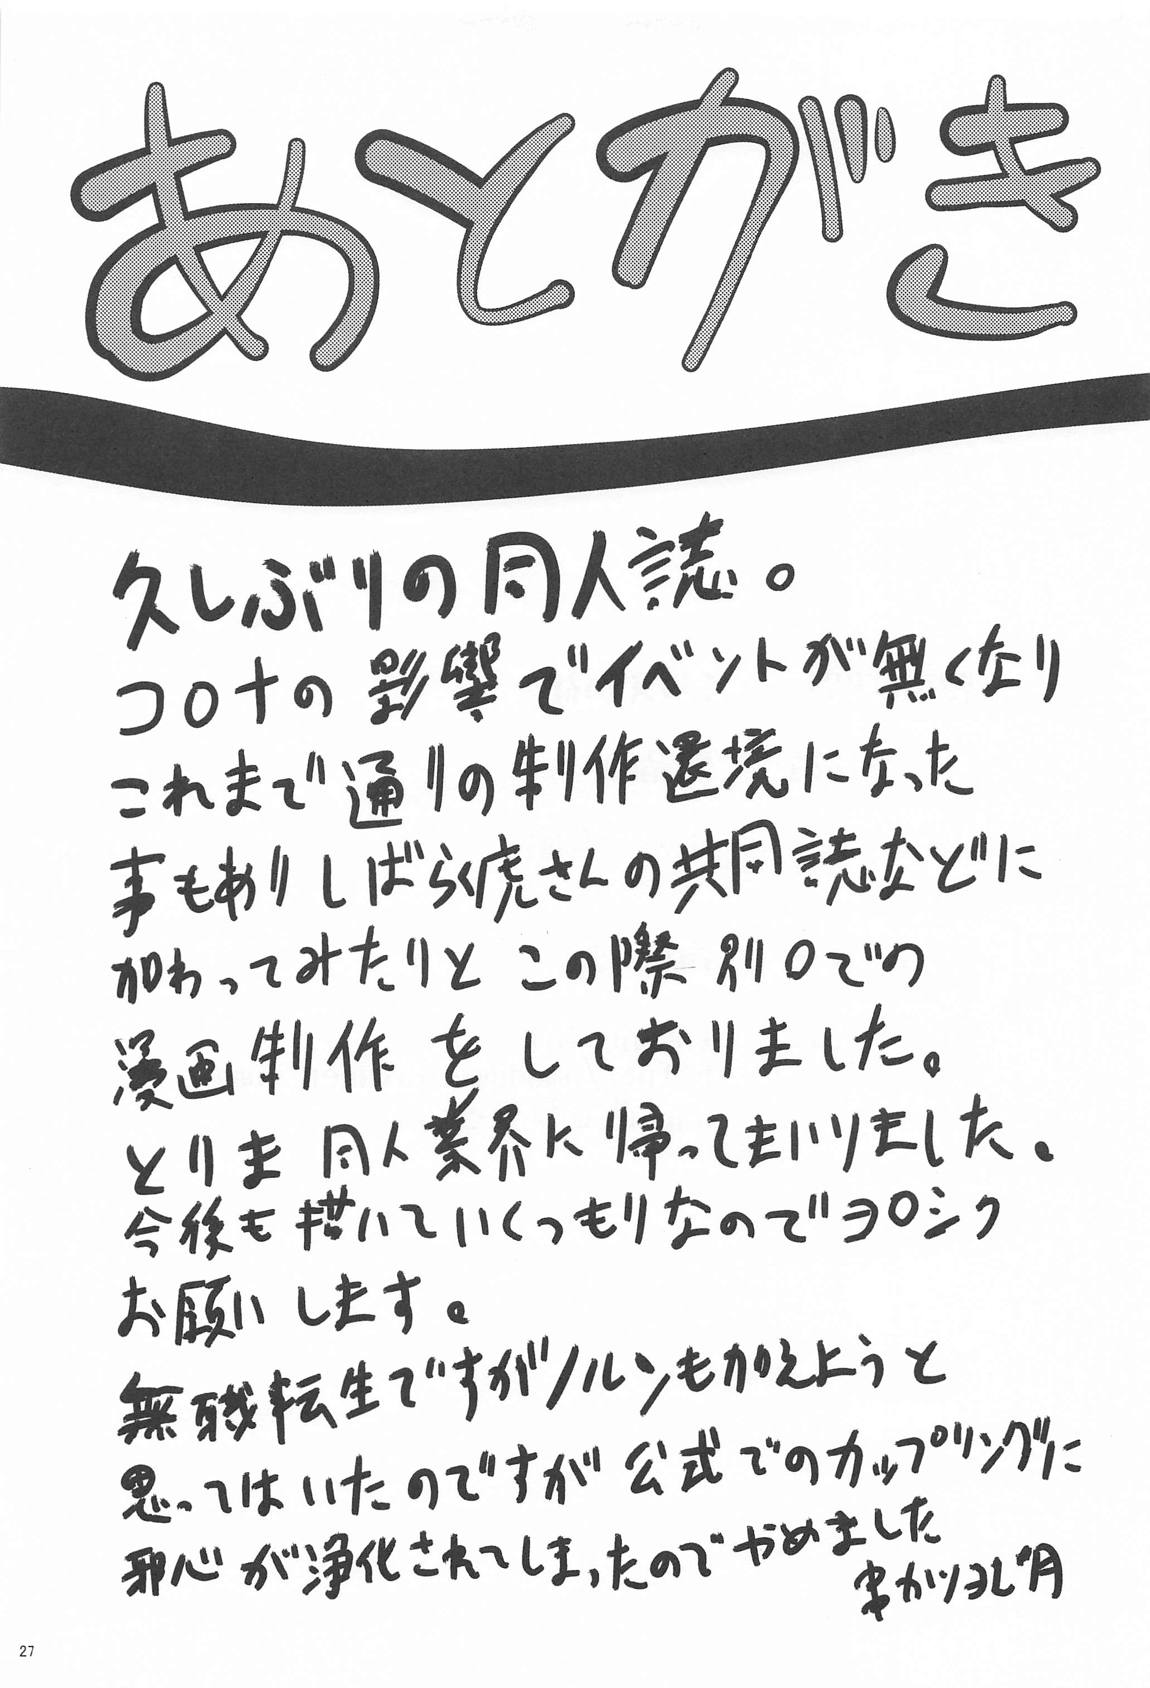 あとがき
久しぶりの同人誌。
コロナの影響でイベントが無くなり
これまで通りの制作環境になった
事もありしばらく虎さんの共同誌などに
加わってみたりと この際 別口での
漫画制作 を しておりました。
とりま 同人業界に帰ってまいりました。
今後も描いていくつもりなのでヨロシク
お願いします。
無職転生ですがノルンもかえようと
思ってはいたのですが 公式でのカップリングに
邪心が浄化されてしまったのでやめました
串かつヨし
27